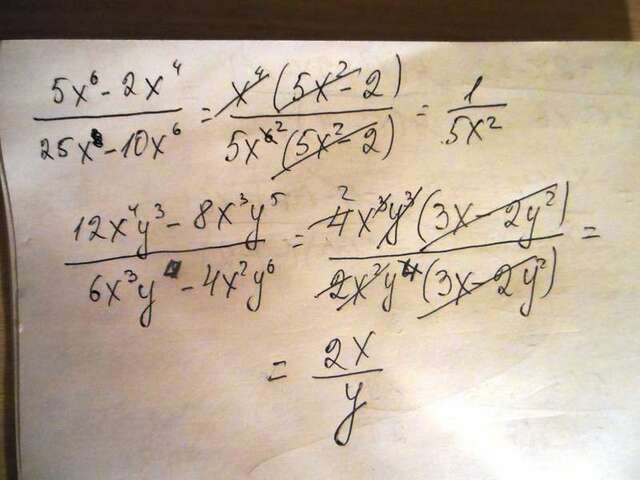 (5x⁶ - 2x⁴)/(25x⁸ - 10x⁶) = x⁴(5x² - 2)/5x⁶²(5x² - 2) = 1/5x²
(12x⁴y³ - 8x³y⁵)/(6x³y⁴ - 4x²y⁶) = ²4x³y³(3x - 2y²)/2x²y⁴(3x - 2y²) =
= 2x/y